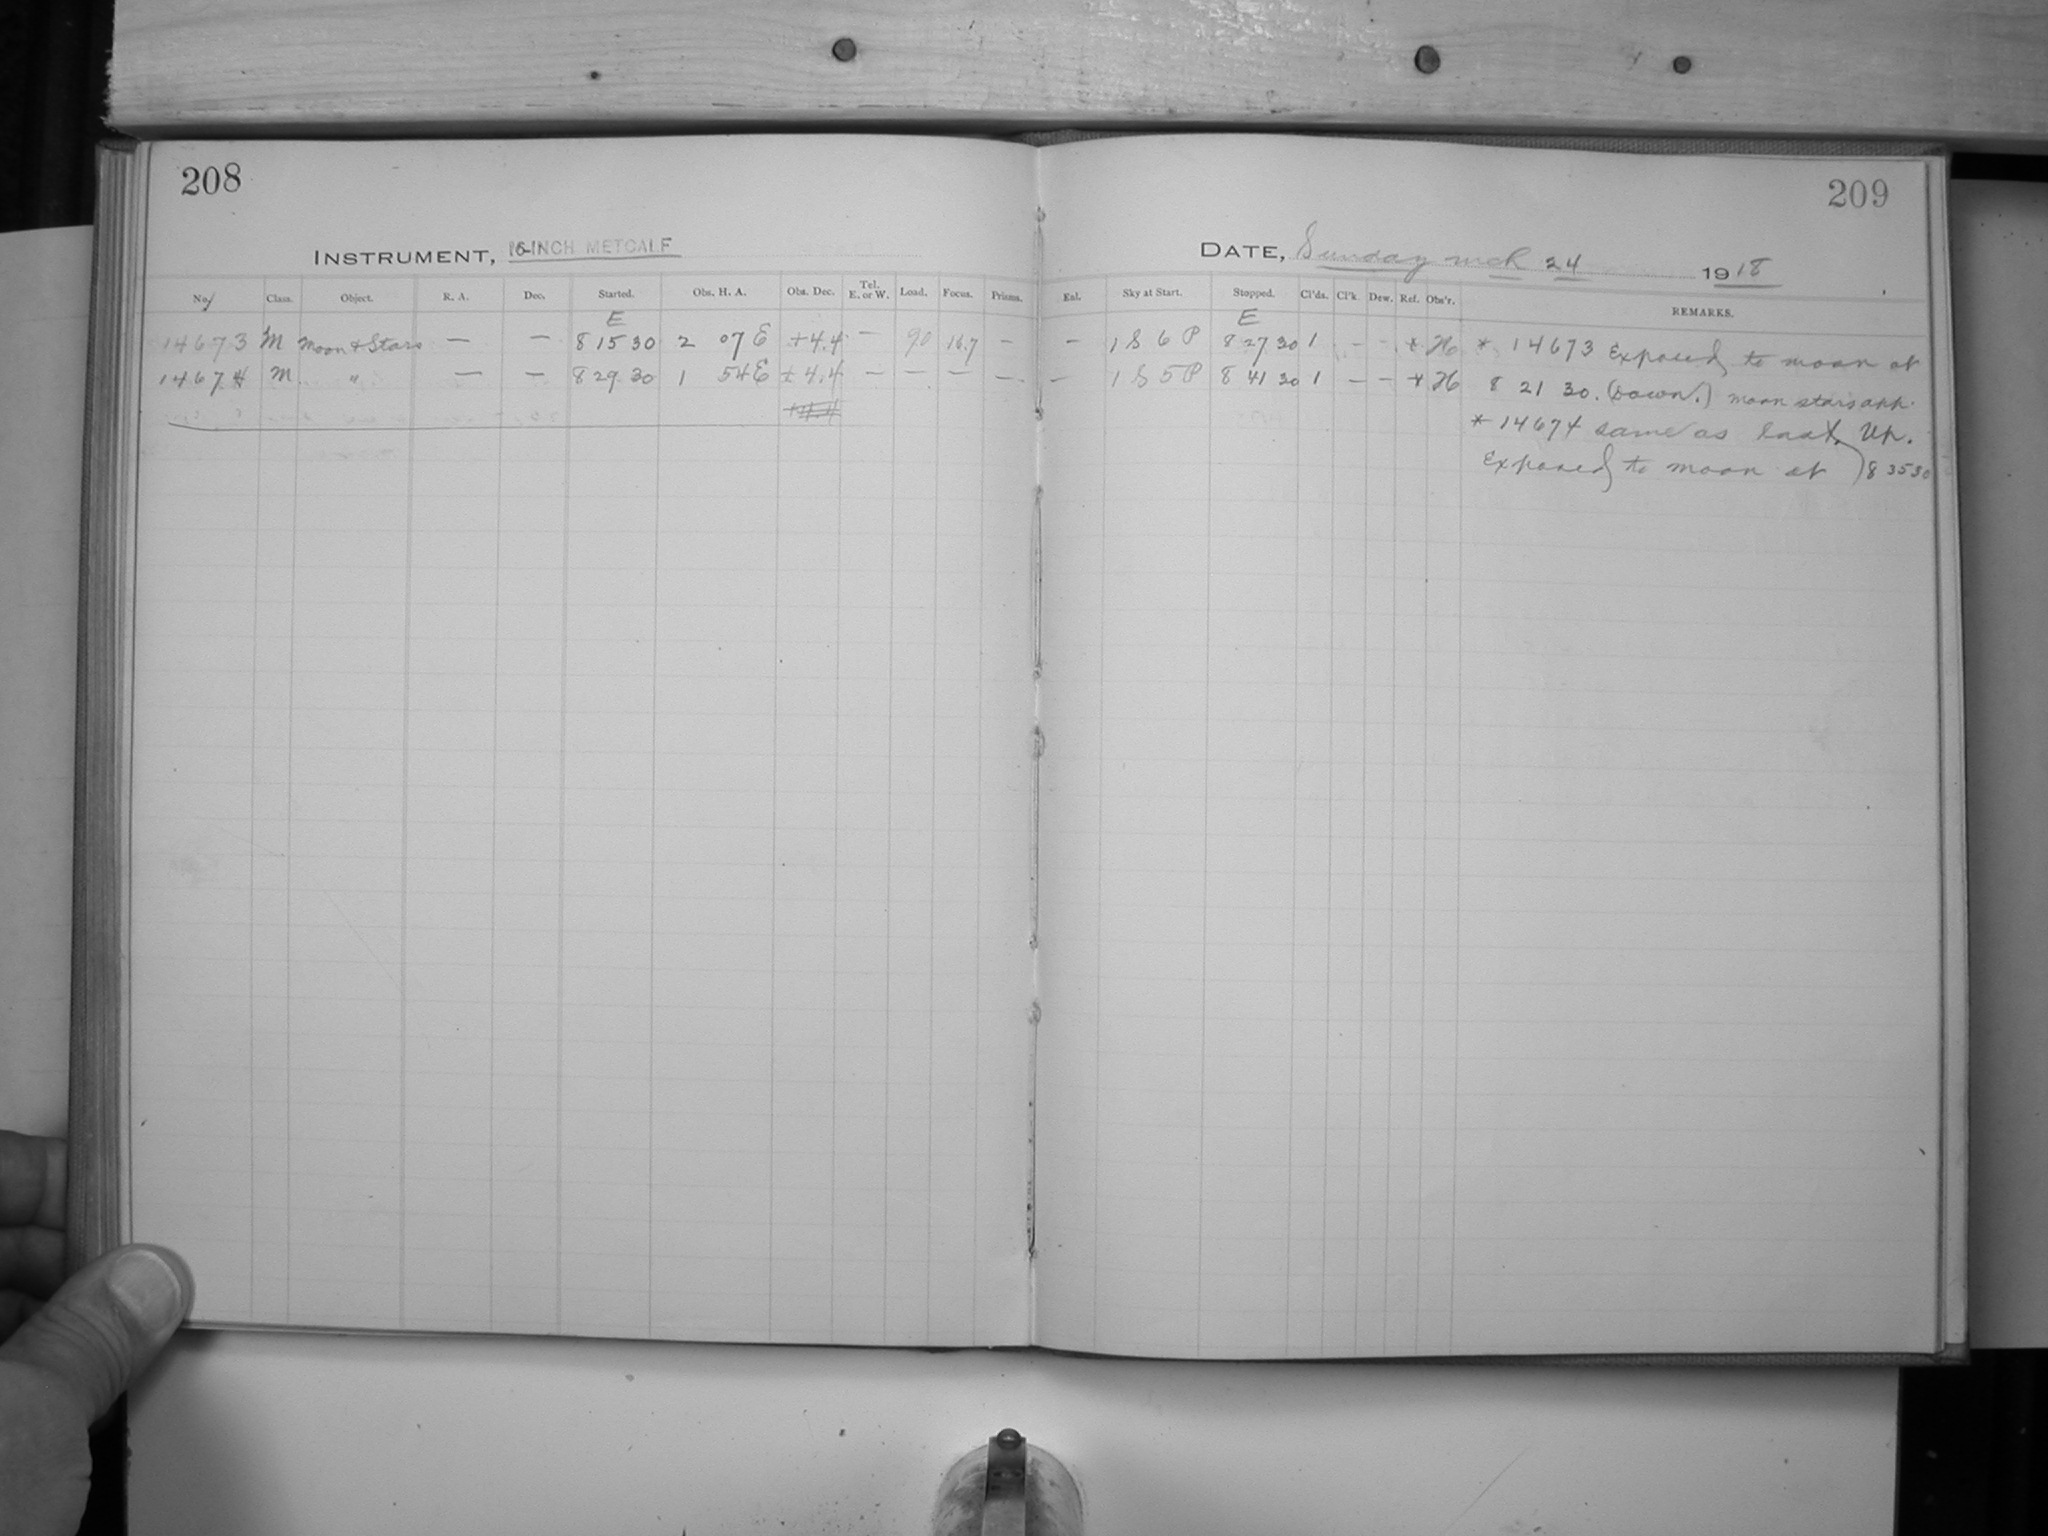 208
INSTRUMENT, 16-INCH METCALF
No. Class. Object. R. A. Dec. Started. Obs. H. A. Obs. Dec. Tel. E. or W. Load. Focus. Prisms.
E
14673 M Moon & Stars — — 8 15 30 2 07 E +4.4 — 90 16.7 —
14674 M " — — 8 29 30 1 54 E +4.4 — — — —
209
DATE, Sunday Mch 24 1918
Eal. Sky at Start. Stopped. Cl'ds. Cl'k. Dew. Ref. Obs'r. REMARKS.
E
— 1 S 6 P 8 27 30 1 - - * H * 14673 Exposed to moon at
— 1 S 5 P 8 41 30 1 — — * H 8 21 30. (Down.) moon stars app.
* 14674 same as last. Up.
Exposed to moon at 8 35 30